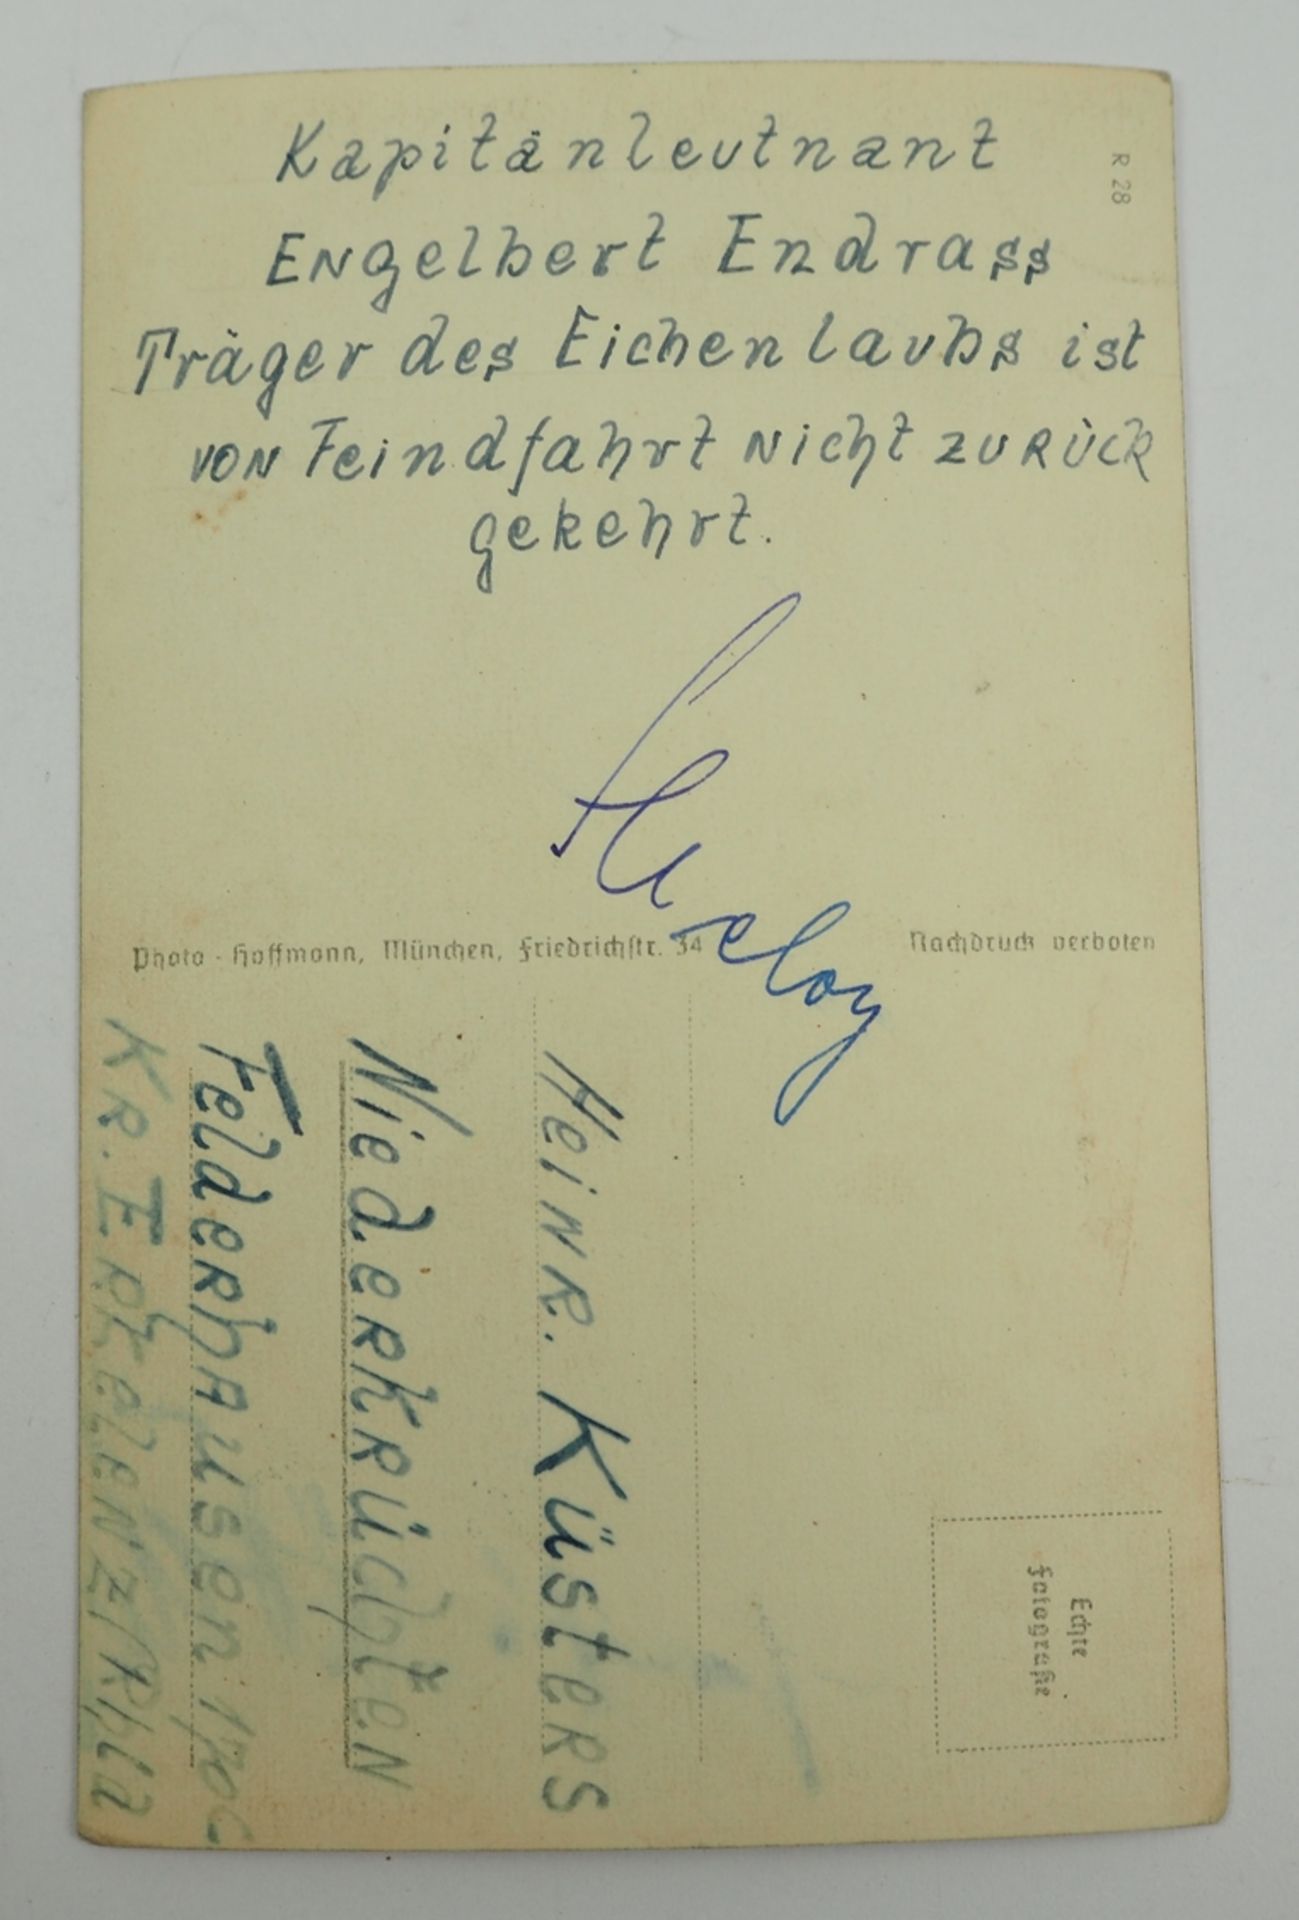 Kapitänleutnant
Engelbert Endrass
Träger des Eichenlaubs ist
von Feindfahrt nicht zurück
gekehrt.
R 28
Photo - Hoffmann, München, Friedrichstr. 34
Nachdruck verboten
Echte
Fotografie
Heinr. Küsters
Niederkrüchten
Felderhausen
Kr. Erkelenz/Rhld